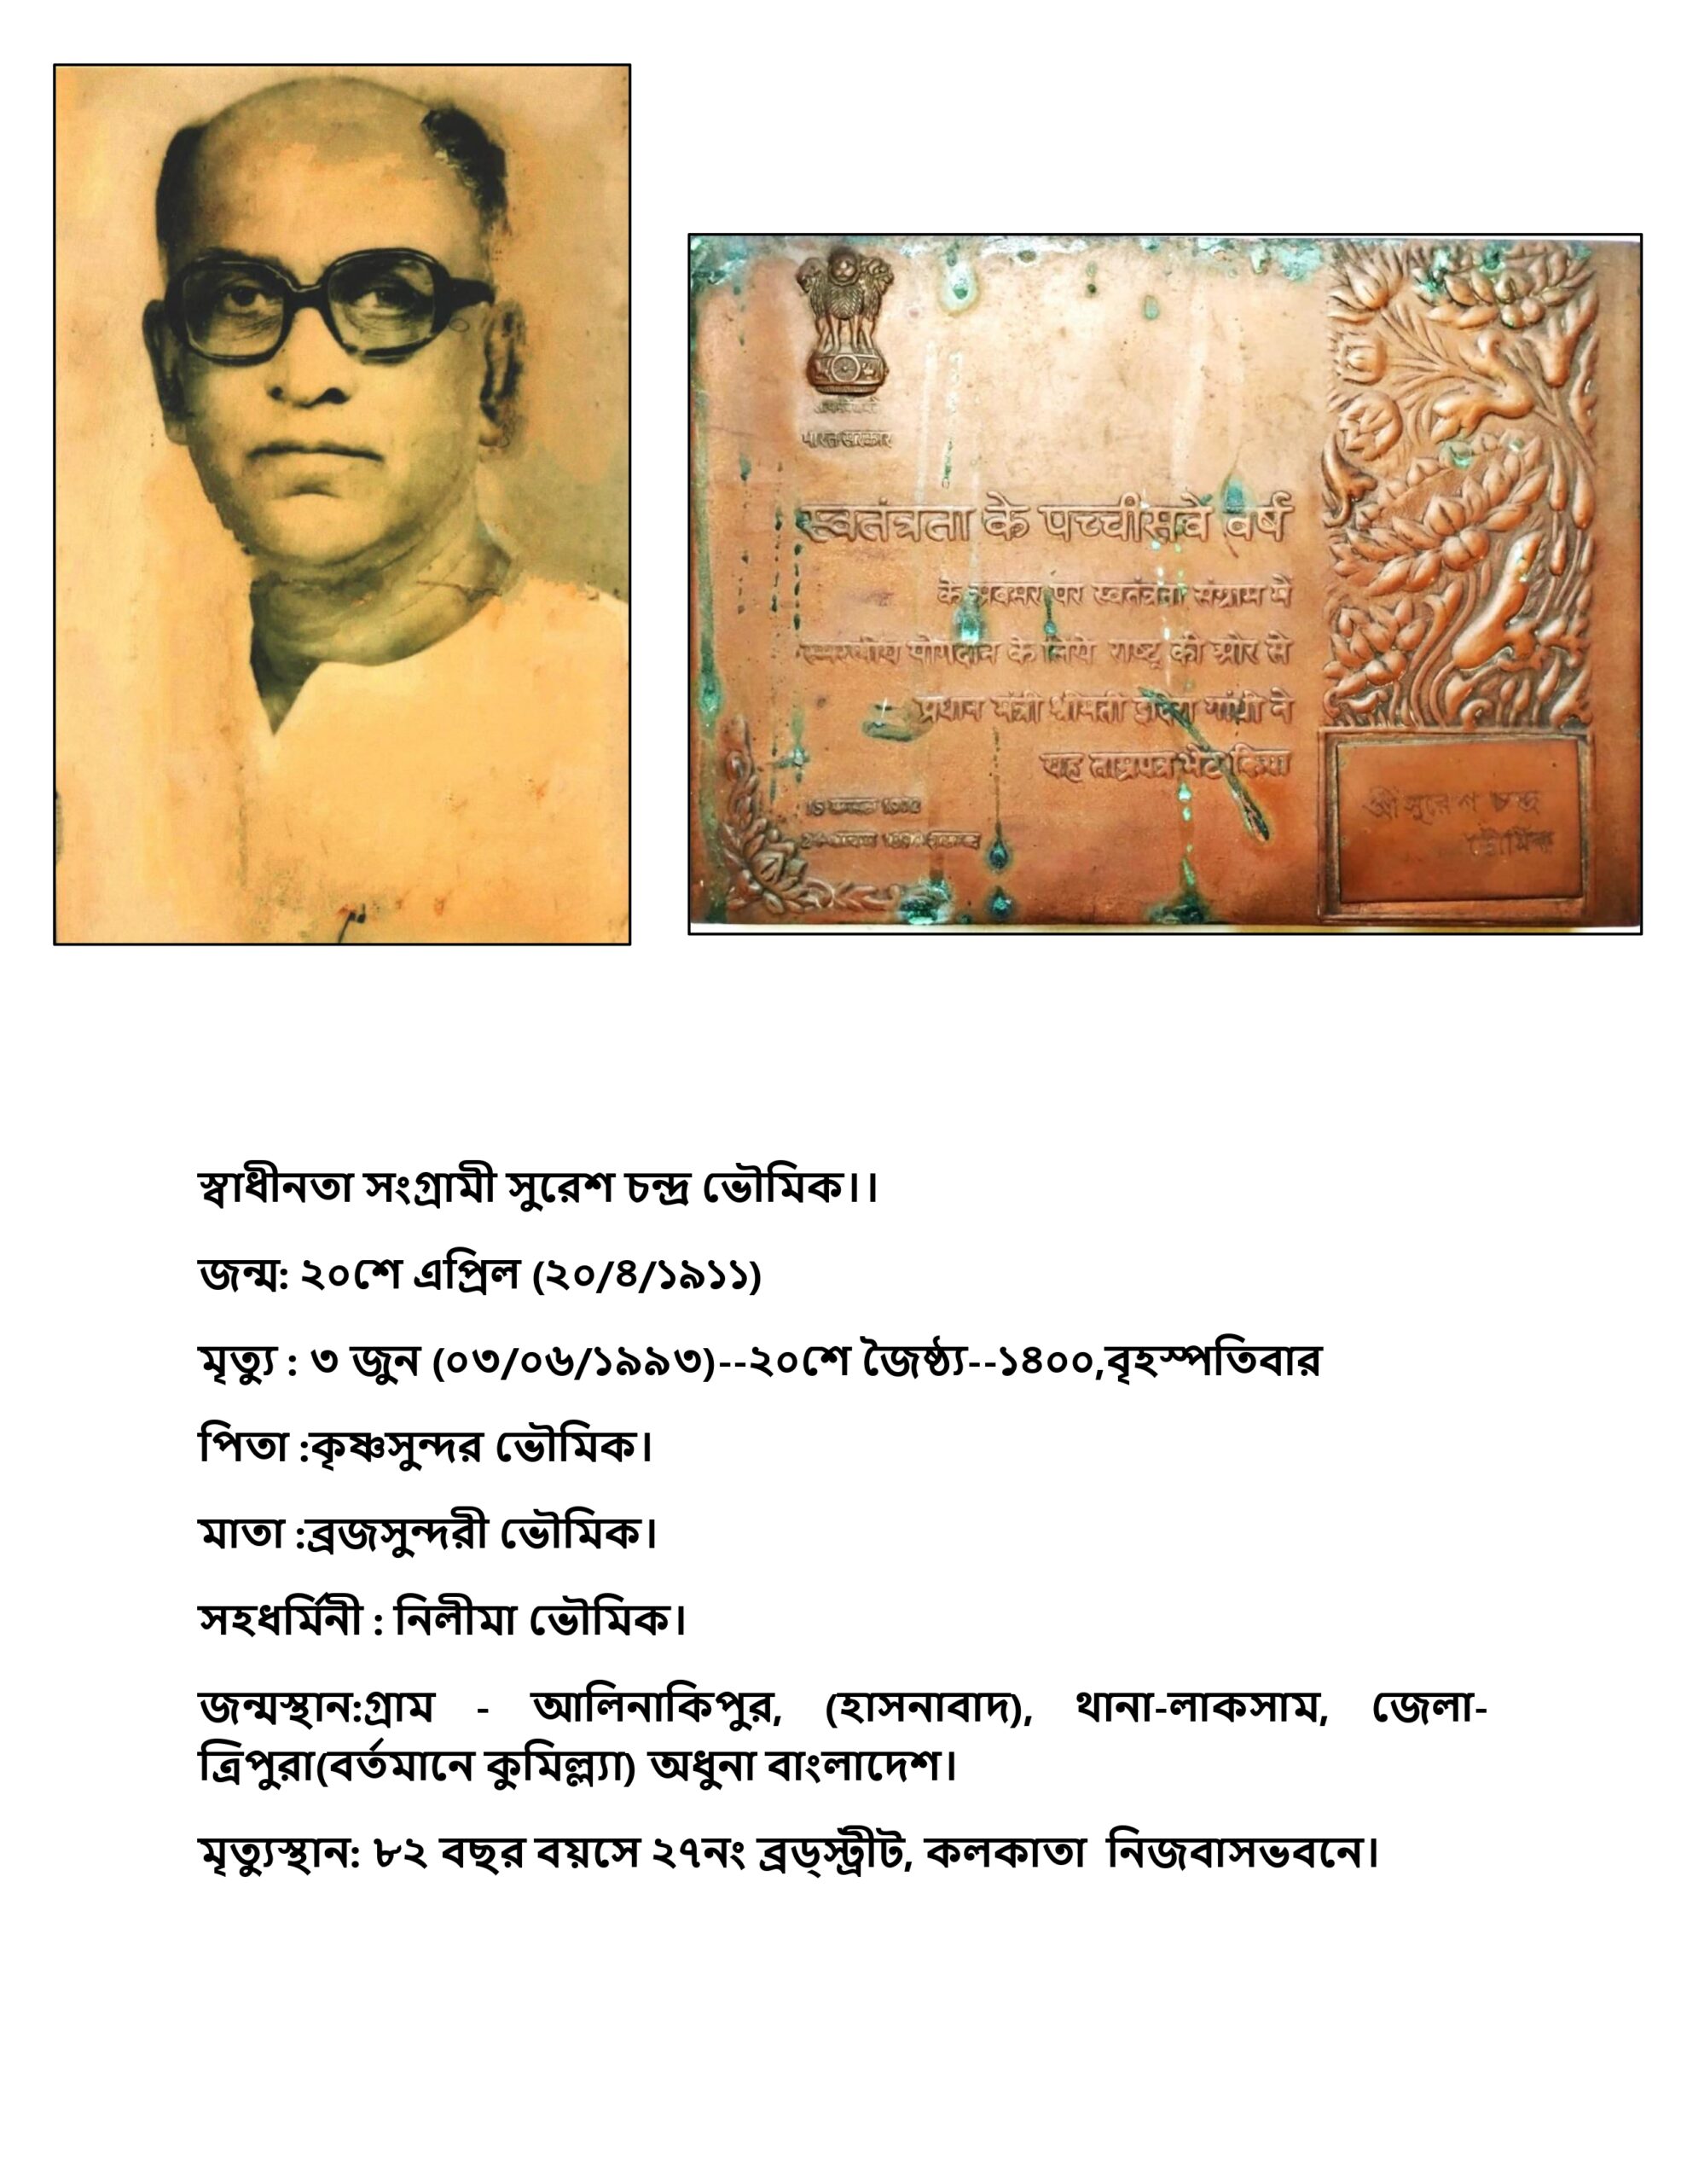 भारत सरकार
स्वतंत्रता के पच्चीसवें वर्ष
के अवसर पर स्वतंत्रता संग्राम में
स्मरणीय योगदान के लिये राष्ट्र की ओर से
प्रधान मंत्री श्रीमती इंदिरा गांधी ने
यह ताम्रपत्र भेंट किया
श्री सुरेश चन्द्र
भौमिक
স্বাধীনতা সংগ্রামী সুরেশ চন্দ্র ভৌমিক।।
জন্ম: ২০শে এপ্রিল (২০/৪/১৯১১)
মৃত্যু : ৩ জুন (০৩/০৬/১৯৯৩)--২০শে জৈষ্ঠ্য--১৪০০,বৃহস্পতিবার
পিতা :কৃষ্ণসুন্দর ভৌমিক।
মাতা :ব্রজসুন্দরী ভৌমিক।
সহধর্মিনী : নিলীমা ভৌমিক।
জন্মস্থান:গ্রাম - আলিনাকিপুর, (হাসনাবাদ), থানা-লাকসাম, জেলা-
ত্রিপুরা(বর্তমানে কুমিল্ল্যা) অধুনা বাংলাদেশ।
মৃত্যুস্থান: ৮২ বছর বয়সে ২৭নং ব্রড্স্ট্রীট, কলকাতা নিজবাসভবনে।